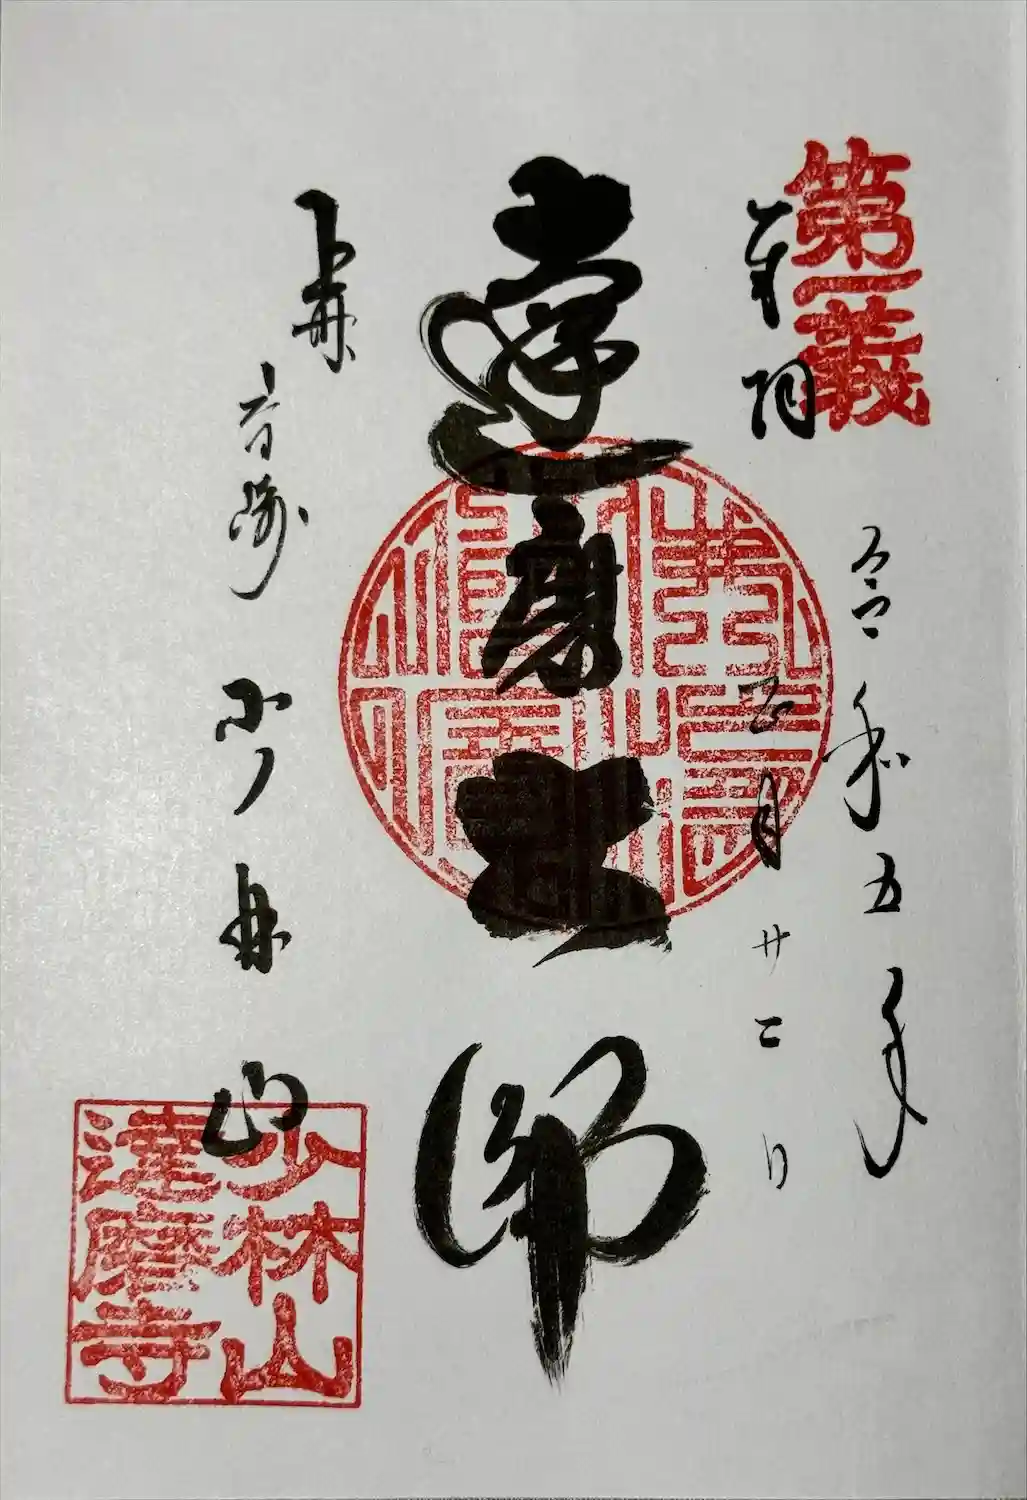 第一義
奉拝
令和五年
五月廿二日
達磨大師
上州
高崎
少林山
少林山
達磨寺